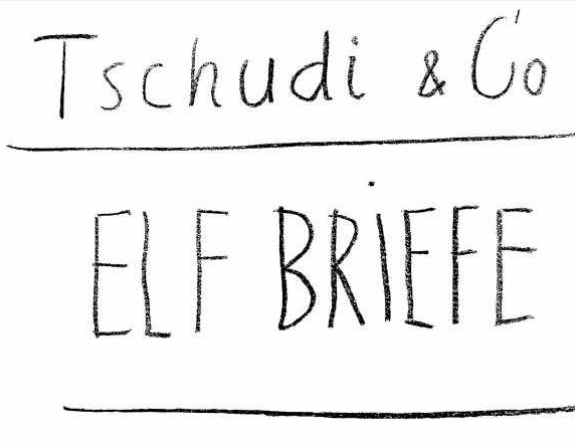 Tschudi & Co
ELF BRIEFE